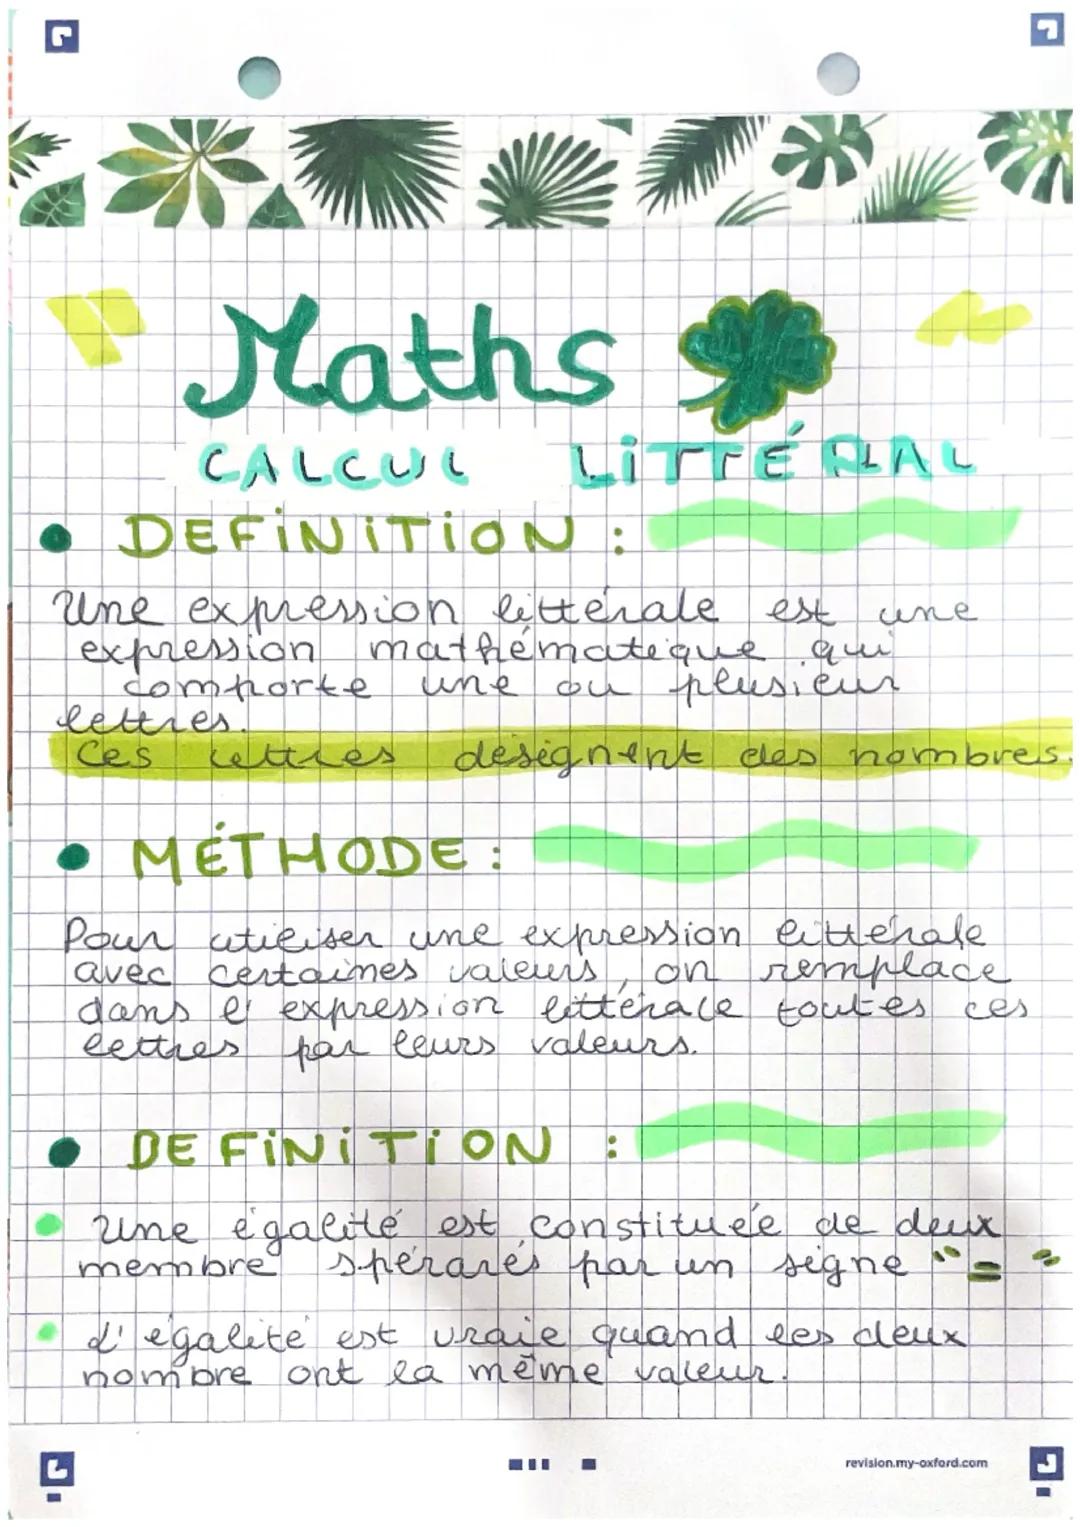 Maths
CALCUL LiTTÉRAL
• DEFiNiTiON :
Une expression littérale est une
expression mathématique qui
comporte une ou plusieur
lettres.
Ces lettres désignent des nombres.
• MÉTHODE :
Pour utiliser une expression littérale
avec certaines valeurs, on remplace
dans l'expression littérale toutes ces
lettres par leurs valeurs.
• DEFiNiTiON :
• Une égalité est constituée de deux
membre spérarés par un signe "="
• L'égalité est vraie quand les deux
nombre ont la même valeur.
revision.my-oxford.com